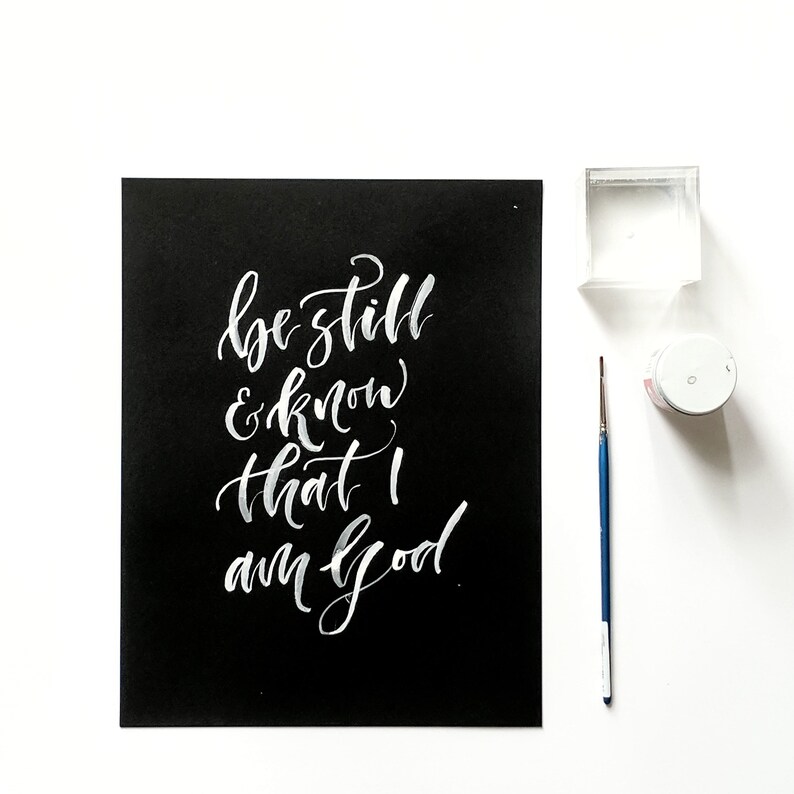 be still
& know
that I
am God